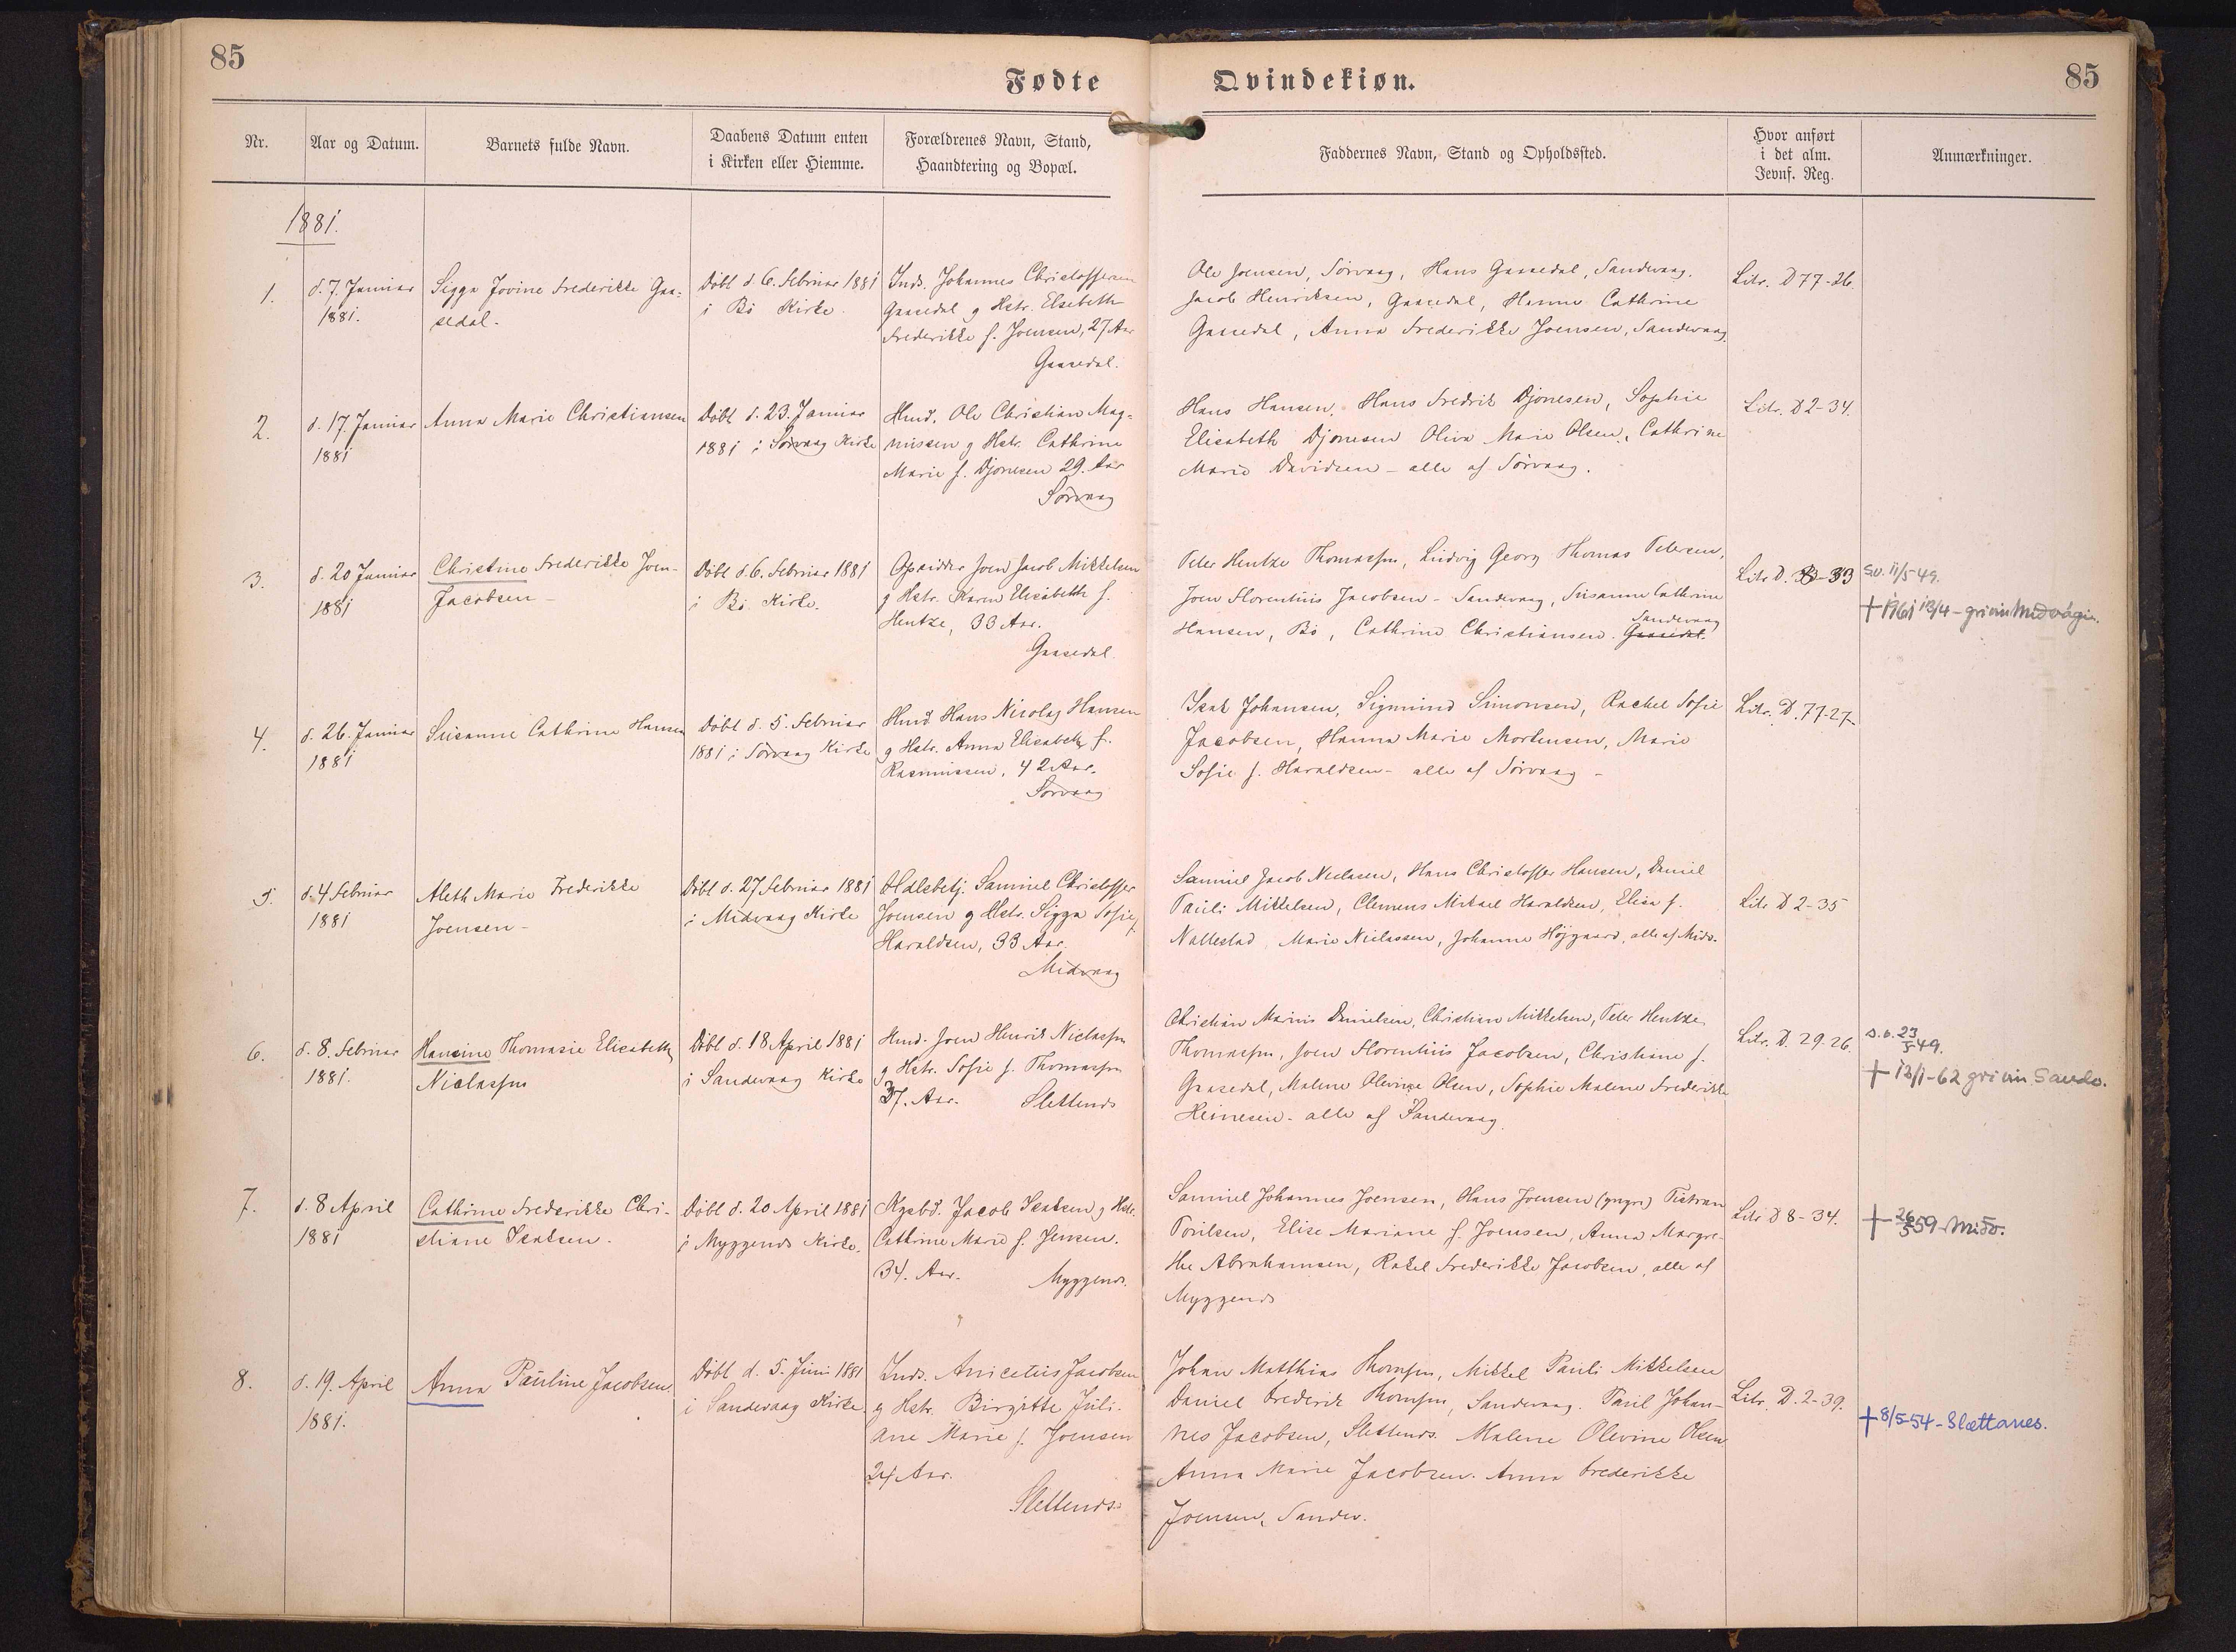 85
Fødte
Qvindekiøn.
85
Nr.
Aar og Datum.
Barnets fulde Navn.
Daabens Datum enten
i Kirken eller Hiemme.
Forældrenes Navn, Stand,
Haandtering og Bopæl.
Faddernes Navn, Stand og Opholdssted.
Hvor anført
i det alm.
Jevnf. Reg.
Anmærkninger.
1881.
1.
d. 7. Januar
1881.
Sigga Jovine Frederikke Gaa-
sedal.
Döbt d. 6. Februar 1881
i Bö Kirke.
Inds. Johannes Christoffersen
Gaasedal og Hstr. Elsebeth
Frederikke f. Joensen, 27 Aar
Gaasedal.
Ole Joensen, Sörvaag, Hans Gaasedal, Sandevaag.
Jacob Henriksen, Gaasedal, Hanne Cathrine
Gaasedal, Anna Frederikke Joensen, Sandevaag.
Litr. D 77-26.
2.
d. 17. Januar
1881
Anna Marie Christiansen
Döbt d. 23. Januar
1881 i Sörvaag Kirke
Hmd. Ole Christian Mag-
nussen og Hstr. Cathrine
Marie f. Djonesen 29. Aar
Sörvaag
Hans Hansen, Hans Fredrik Djonesen, Sophie
Elisabeth Djonesen Oliva Marie Olsen, Cathrine
Marie Davidsen - alle af Sörvaag.
Litr. D 2-34.
3.
d. 20 Januar
1881
Christine Frederikke Joen-
Jacobsen -
Döbt d. 6. Februar 1881
i Bö Kirke.
Opsidder Joen Jacob Mikkelsen
og Hstr. Karen Elisabeth f.
Hentze, 33 Aar.
Gaasedal
Peter Hentze Thomassen, Ludvig Georg Thomas Petersen,
Joen Florentius Jacobsen - Sandevaag, Susanne Cathrine
Hansen, Bö, Cathrine Christiansen. Gaasedal.
Sandevaag
Litr. D. 33
Sv. 11/5 49.
† 1961 13/4 - grivin Miðvági.
4.
d. 26. Januar
1881
Susanne Cathrine Hansen
Döbt d. 5. Februar
1881 i Sörvaag Kirke
Hmd. Hans Nicolaj Hansen
og Hstr. Anna Elisabeth f.
Rasmussen, 42 Aar.
Sörvaag
Isak Johansen, Sigmund Simonsen, Rachel Sofie
Jacobsen, Hanna Marie Mortensen, Marie
Sofie f. Haraldsen - alle af Sörvaag -
Litr. D. 77-27.
5.
d. 4 Februar
1881
Aleth Marie Frederikke
Joensen -
Döbt d. 27 Februar 1881
i Midvaag Kirke
Hdlsbetj. Samuel Christoffer
Joensen og Hstr. Sigga Sofie f.
Haraldsen, 33 Aar.
Midvaag
Samuel Jacob Niclasen, Hans Christoffer Hansen, Daniel
Pauli Mikkelsen, Clemens Mikael Haraldsen, Elisa f.
Nollestad, Marie Niclassen, Johanne Höjgaard, alle af Midv.
Litr D 2-35
6.
d. 8. Februar
1881.
Hansine Thomasie Elisabeth
Niclassen
Döbt d. 18 April 1881
i Sandevaag Kirke
Hmd. Joen Henrik Niclassen
og Hstr. Sofie f. Thomassen
37. Aar. Slettends
Christian Marius Danielsen, Christian Mikkelsen, Peter Hentze
Thomassen, Joen Florentius Jacobsen, Christiane f.
Gaasedal, Malene Olevine Olsen, Sophie Malene Frederikke
Heinesen - alle af Sandevaag.
Litr. D. 29.26.
s.v. 23/5 49.
† 13/1-62 grivin Sandv.
7.
d. 8 April
1881
Cathrine Frederikke Chri-
stiane Isaksen.
Döbt d. 20 April 1881
i Myggends Kirke.
Kgsbd. Jacob Isaksen og Hstr.
Cathrine Marie f. Jensen.
34. Aar. Myggends.
Samuel Johannes Joensen, Hans Joensen (yngre) Tistran
Poulsen, Elise Mariane f. Joensen, Anna Margre-
the Abrahamsen, Rakel Frederikke Jacobsen, alle af
Myggends
Litr D 8-34.
† 26/5 59 - Miðv.
8.
d. 19. April
1881.
Anna Pauline Jacobsen.
Döbt d. 5. Juni 1881
i Sandevaag Kirke.
Inds. Anicetius Jacobsen
og Hstr. Birgitte Juli-
ane Marie f. Joensen
24 Aar.
Slettends.
Johan Matthias Thomsen, Mikkel Pauli Mikkelsen
Daniel Frederik Thomsen, Sandevaag. Paul Johan-
nes Jacobsen, Slettends. Malene Olevine Olsen
Anna Marie Jacobsen. Anna Frederikke
Joensen, Sandev.
Litr. D. 2-39.
† 8/5-54 - Slættanes.